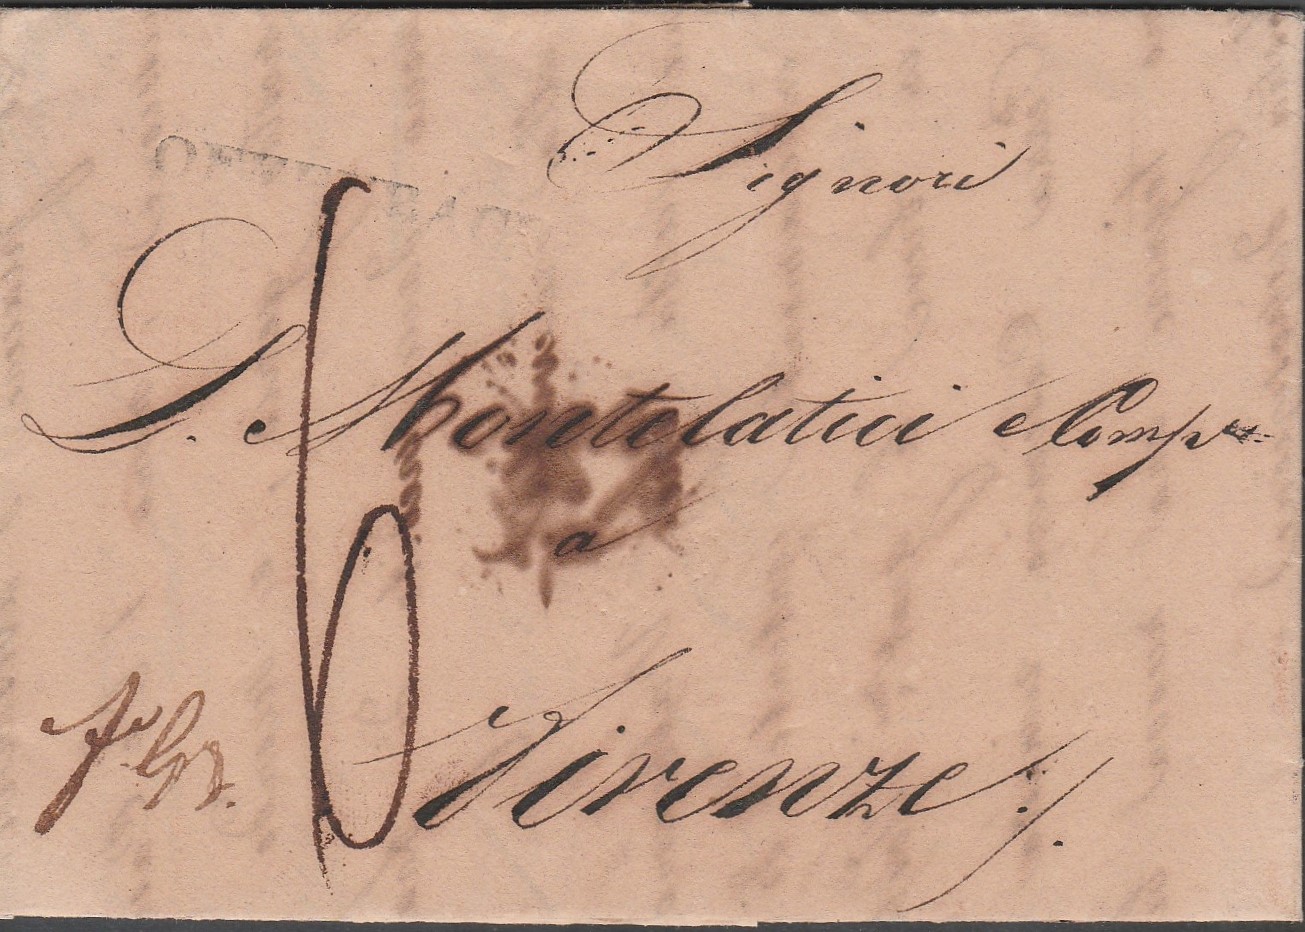 Signori
D. Montelatici e Comp.
a
Firenze.
6